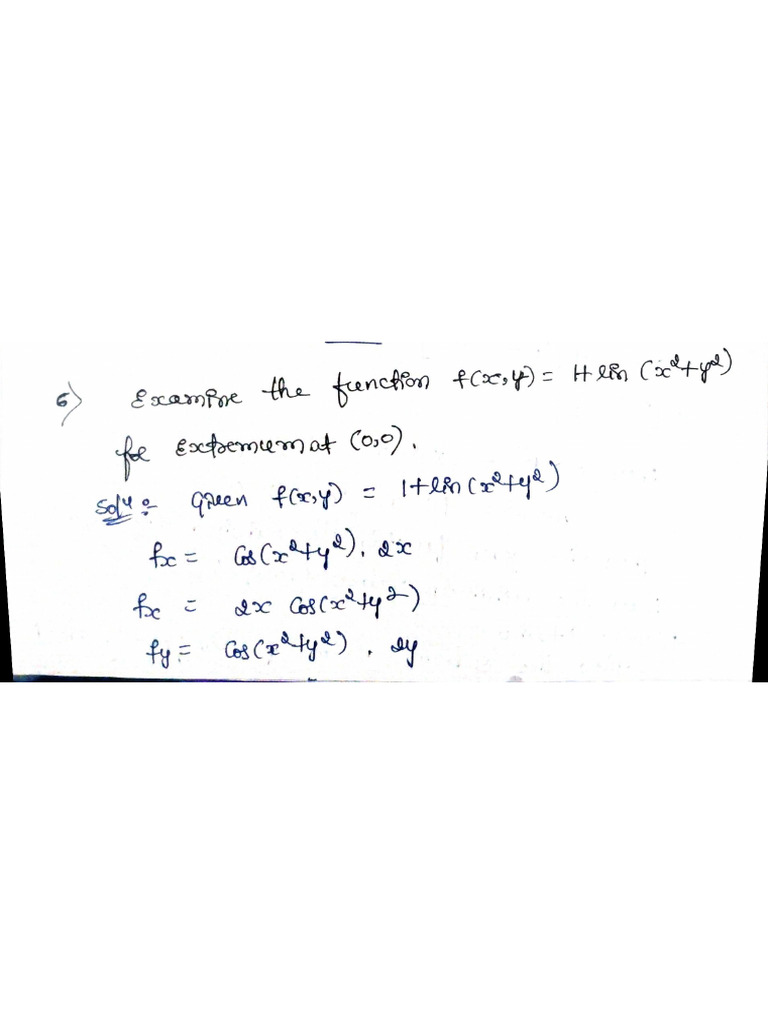 6) Examine the function f(x,y) = 1+sin (x²+y²)
for extremum at (0,0).
Sol4:- Given f(x,y) = 1+sin(x²+y²)
fx = Cos(x²+y²). 2x
fx = 2x Cos(x²+y²)
fy = Cos(x²+y²). 2y